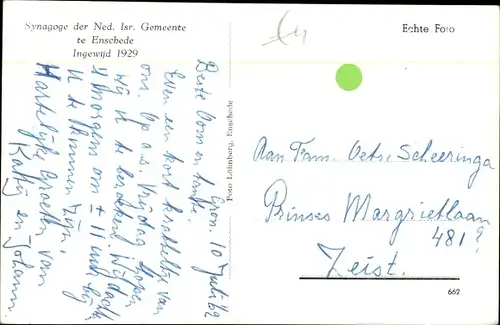 Synagoge der Ned. Isr. Gemeente
te Enschede
Ingewijd 1929
Echte Foto
Foto Löhnberg, Enschede
10 Juli 62
Beste Oom en tante.
Even een kort krabbeltje van
ons. Op a.s. Vrijdag hopen
wij U te bezoeken. Wij
's morgens om ± 11 uur bij
U te kunnen zijn.
Hartelijke groeten van
en Johann
Aan Fam. Oets. Scheeringa
Prinses Margrietlaan
481?
Zeist.
662